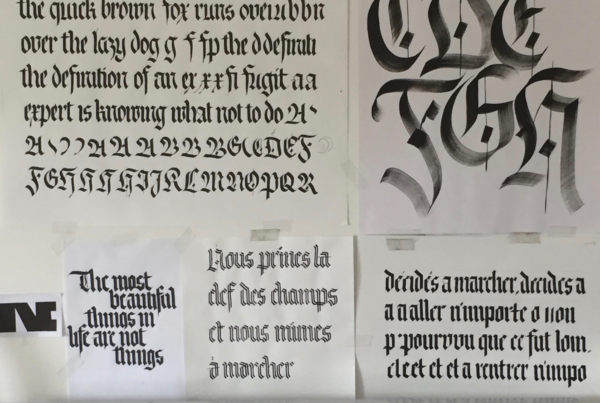 the quick brown fox runs over
over the lazy dog g f fp the d definiti
the definition of an ex x x fi fugit a a
expert is knowing what not to do A
A A A A B B B G C D E F
F G H H H H I J K L M N O P Q R
C D E
F G H
The most
beautiful
things in
life are not
things
Nous prîmes la
clef des champs
et nous mîmes
à marcher
décidés a marcher, decides a
a a aller n'importe o non
p pourvu que ce fut loin.
cl e et et et a rentrer n'impo
N